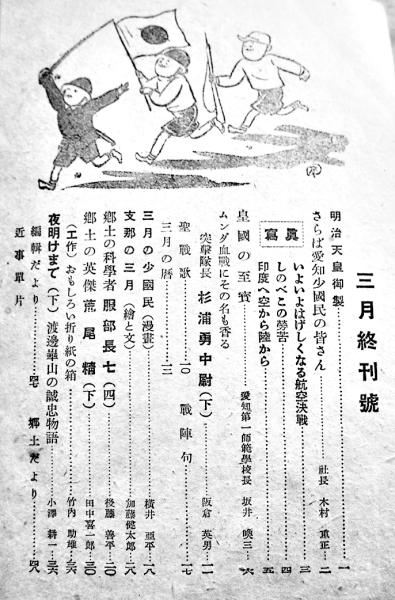 三月終刊號
明治天皇御製……一
さらば愛知少國民の皆さん……社長 木村重正…二
寫眞
いよいよはげしくなる航空決戰……三
しのべこの勞苦……四
印度へ空から陸から……五
皇國の至寶……愛知第一師範學校長 坂井喚三…六
ムンダ血戰にその名も香る
突撃隊長 杉浦勇中尉(下)……阪倉英男…一一
聖戰歌……一〇 戰陣句……一七
三月の暦……一二
三月の少國民(漫畫)……橫井亜平…一八
支那の三月(繪と文)……加藤健太郎…二八
鄕土の科學者 服部長七(四)……後藤善平…二〇
鄕土の英傑 荒尾精(下)……田中喜一郎…三〇
(工作)おもしろい折り紙の箱……竹内助雄…三六
夜明けまで(下)渡邊崋山の誠忠物語……小澤耕一…三六
編輯だより……四七 鄕土だより……四八
近事單片